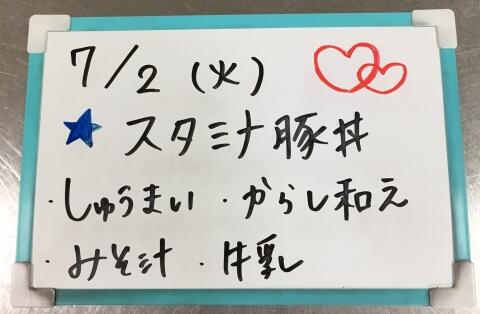 7/2 (火)
スタミナ豚丼
・しゅうまい ・からし和え
・みそ汁 ・牛乳